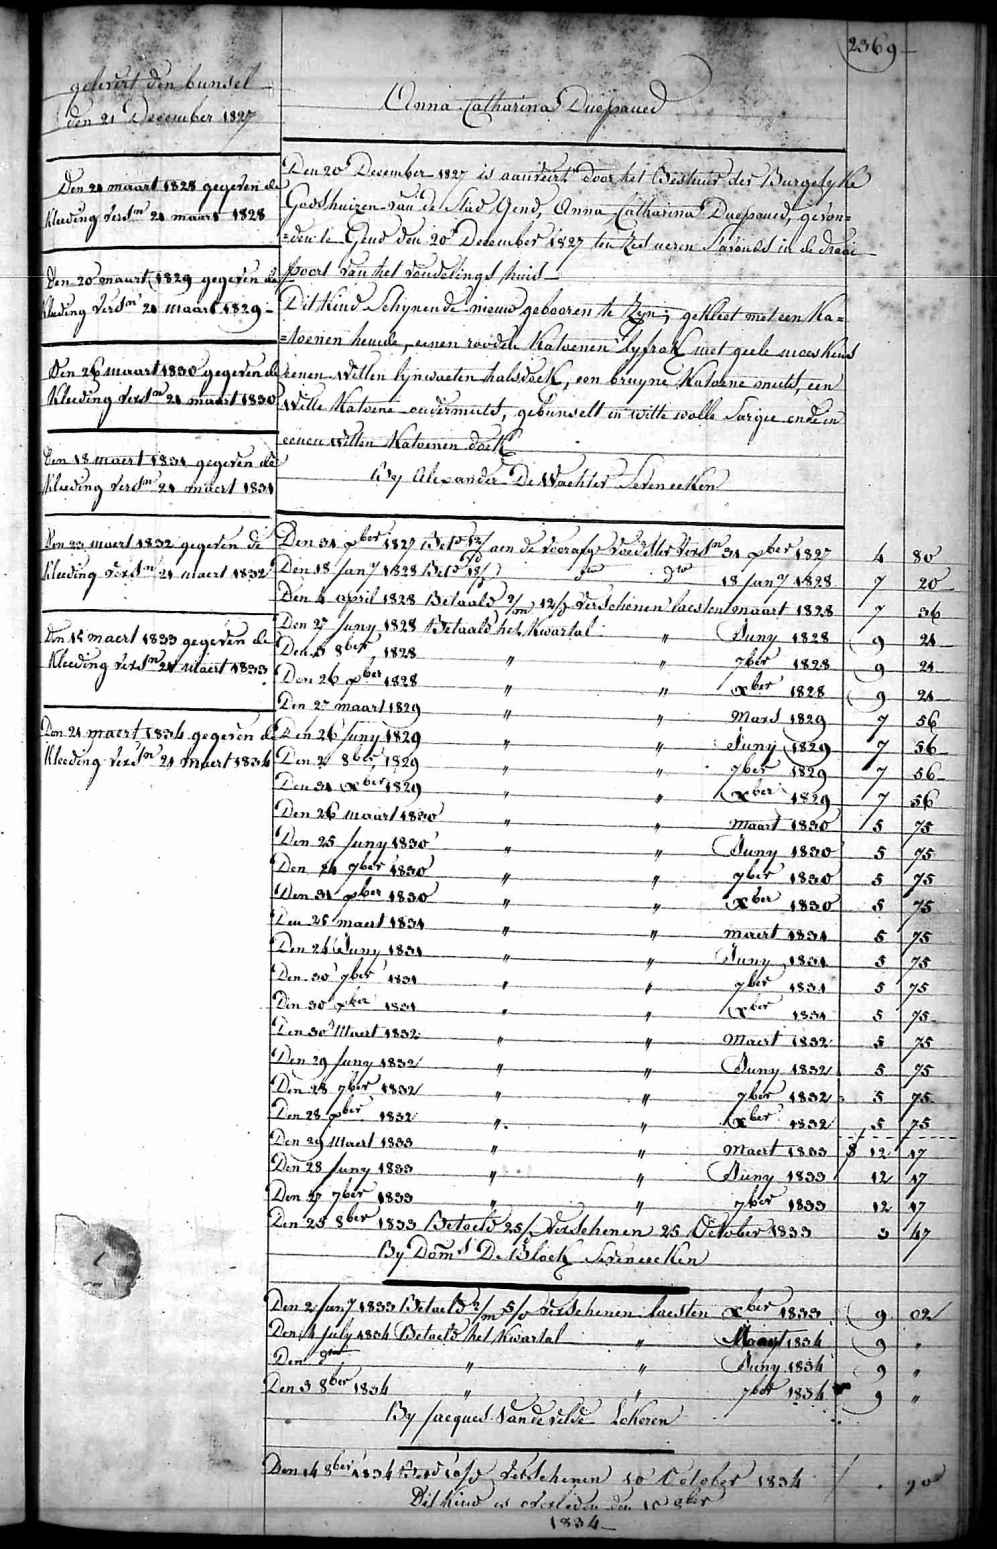 2369
gelevert den bunsel
den 21 December 1827
Anna Catharina Duepaued
Den 21 maart 1828 gegeven de
kleeding verst.n 21 maart 1828
Den 20 maart 1829 gegeven de
kleeding verst.n 21 maart 1829
Den 26 maart 1830 gegeven de
kleeding verst.n 21 maart 1830
Den 18 maert 1831 gegeven de
kleeding verst.n 21 maert 1831
Den 23 maert 1832 gegeven de
kleeding verst.n 21 maert 1832
Den 15 maert 1833 gegeven de
kleeding verst.n 21 maert 1833
Den 21 maert 1834 gegeven de
kleeding verst.n 21 maert 1834
Den 20 December 1827 is aanveirt door het Bestuur der Burgelyke
Godshuizen van de Stad Gend, Anna Catharina Duepaued, gevon=
=den te Gend den 20 December 1827 ten zes ueren s'avonds in de draai
poort van het vondelings huis
Dit kind Schynende nieuw gebooren te zyn, gekleet met een Ka=
=toenen hemde, eenen rooden Katoenen lyfrok met geele
eenen witten lynwaeten halsdoek, een bruyne Katoene muts, een
witte Katoene ondermuts, gebunselt in witte wolle Sargie ende in
eenen witten Katoenen doek
By Alexander De Wachter Seveneeken
Den 31 xber 1827 Bet. 12/ aen de voedster verst.n 31 xber 1827 4 80
Den 18 Jany 1828 Bet. 18/ dto dto 18 Jany 1828 7 20
Den 4 april 1828 Betaald 2/m 12/ verschenen laesten maart 1828 7 36
Den 27 Juny 1828 Betaald het kwartal " Juny 1828 9 24
Den 3 8ber 1828 " " 7ber 1828 9 24
Den 26 xber 1828 " " xber 1828 9 24
Den 27 maart 1829 " " Mars 1829 7 56
Den 26 Juny 1829 " " Juny 1829 7 56
Den 2 8ber 1829 " " 7ber 1829 7 56
Den 31 xber 1829 " " xber 1829 7 56
Den 26 maart 1830 " " Maart 1830 5 75
Den 25 Juny 1830 " " Juny 1830 5 75
Den 24 7ber 1830 " " 7ber 1830 5 75
Den 31 xber 1830 " " xber 1830 5 75
Den 25 maert 1831 " " maert 1831 5 75
Den 24 Juny 1831 " " Juny 1831 5 75
Den 30 7ber 1831 " " 7ber 1831 5 75
Den 30 xber 1831 " " xber 1831 5 75
Den 30 Maert 1832 " " Maert 1832 5 75
Den 29 Juny 1832 " " Juny 1832 5 75
Den 28 7ber 1832 " " 7ber 1832 5 75
Den 28 xber 1832 " " xber 1832 5 75
Den 29 Maert 1833 " " Maert 1833 12 17
Den 28 Juny 1833 " " Juny 1833 12 17
Den 27 7ber 1833 " " 7ber 1833 12 17
Den 25 8ber 1833 Betaeld 25/ verschenen 25 October 1833 3 47
By Dom.s De Block Seveneecken
Den 2 Jany 1833 Betaeld 2/m 5/ verschenen laesten xber 1833 9 02
Den 4 July 1834 Betaeld het Kwartal " Maart 1834 9 "
Den dto " " Juny 1834 9 "
Den 3 8ber 1834 " " 7ber 1834 9 "
By Jacques Vandevelde Lokeren
Den 14 8ber 1834 Bet.d 10/ verschenen 10 October 1834 . 90
Dit kind is overleden den 10 8ber
1834